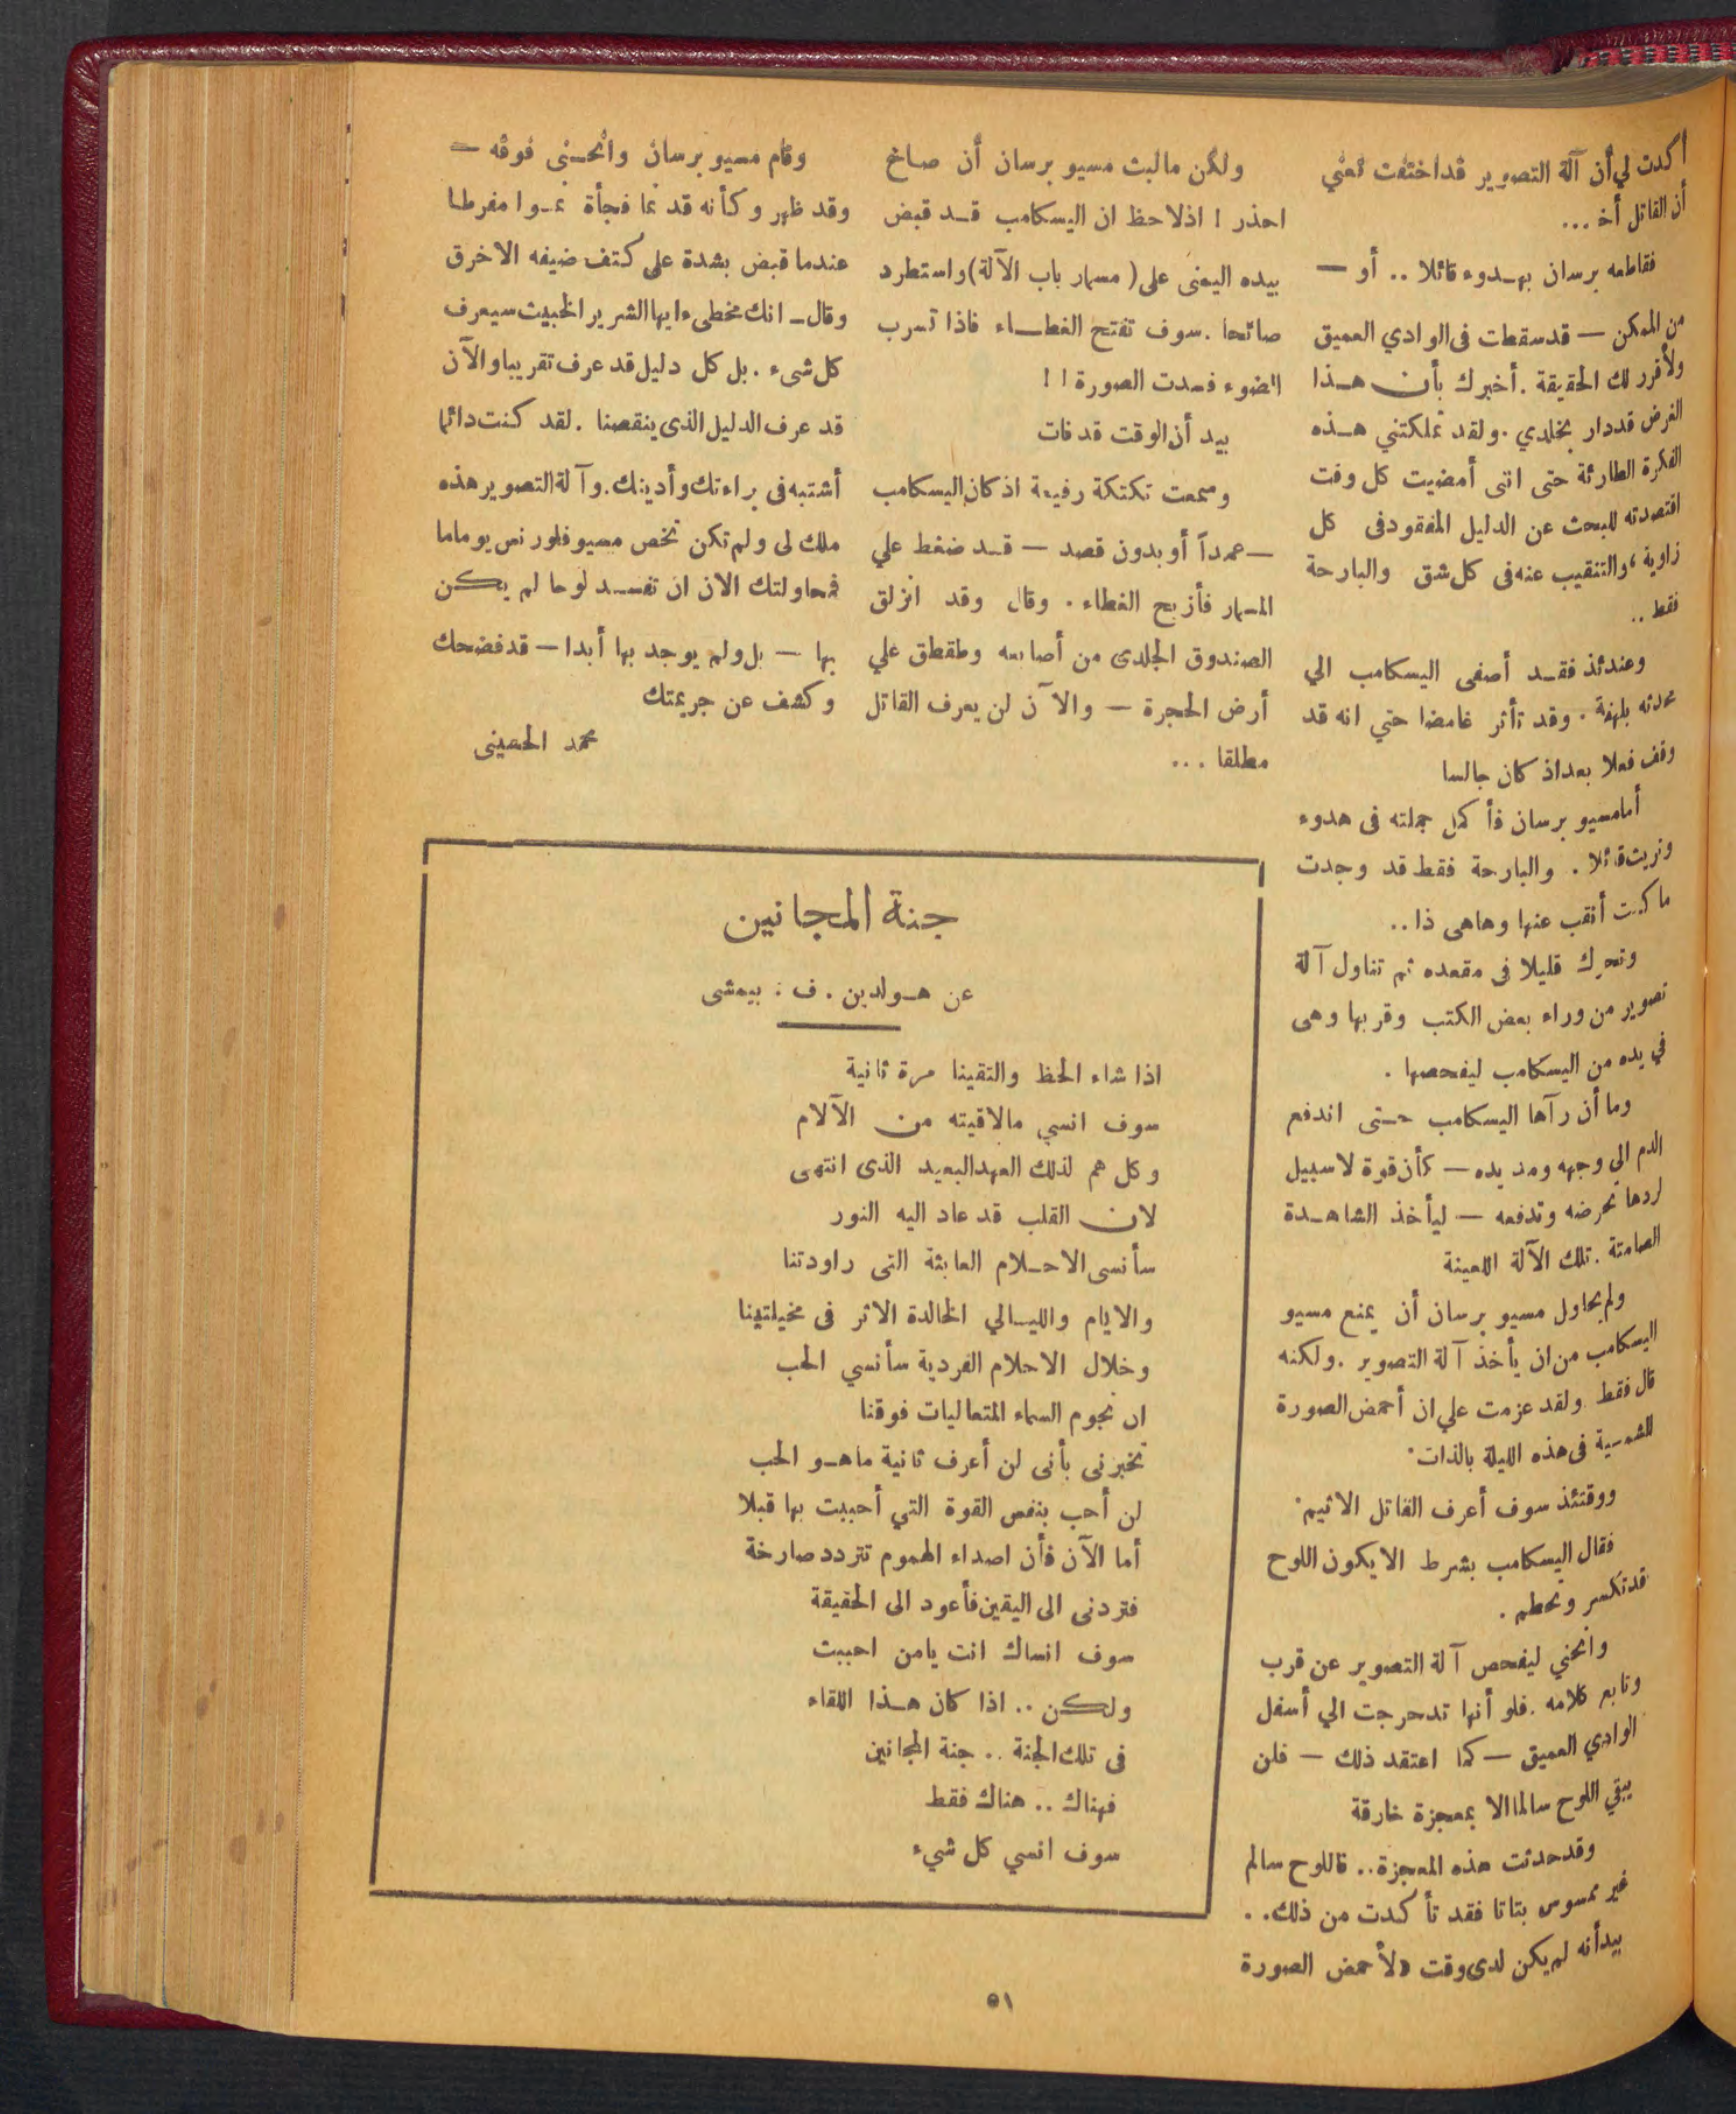 أكدت لي أن آلة التصوير قد اختفت تعني
أن القاتل أخ ...
فقاطعه برسان بهدوء قائلا .. أو —
من الممكن — قد سقطت فى الوادي العميق
ولأقرر لك الحقيقة . أخبرك بأن هذا
الغرض قد دار بخلدي . ولقد تملكتني هذه
الفكرة الطارئة حتى انى أمضيت كل وقت
اقتصدته للبحث عن الدليل المفقود فى كل
زاوية ، والتنقيب عنه فى كل شق والبارحة
فقط ..
وعندئذ فقد أصغى اليسكامب الي
محدثه بلهفة . وقد تأثر غامضا حتي انه قد
وقف فعلا بعد اذ كان جالسا
أما مسيو برسان فأ كمل جملته فى هدوء
وتريث قائلا . والبارحة فقط قد وجدت
ما كنت أنقب عنها وهاهى ذا ..
وتحرك قليلا فى مقعده ثم تناول آلة
تصوير من وراء بعض الكتب وقربها وهى
في يده من اليسكامب ليفحصها .
وما أن رآها اليسكامب حتى اندفع
الدم الي وجهه ومد يده — كأن قوة لا سبيل
لردها تحرضه وتدفعه — ليأخذ الشاهدة
الصامتة . تلك الآلة اللعينة
ولم يحاول مسيو برسان أن يمنع مسيو
اليسكامب من ان يأخذ آلة التصوير . ولكنه
قال فقط ولقد عزمت علي ان أحمض الصورة
الشمسية فى هذه الليلة بالذات .
ووقتئذ سوف أعرف القاتل الاثيم .
فقال اليسكامب بشرط الا يكون اللوح
قد تكسر وتحطم .
وانحني ليفحص آلة التصوير عن قرب
وتابع كلامه . فلو أنها تدحرجت الي أسفل
الوادي العميق — كما اعتقد ذلك — فلن
يبقي اللوح سالما الا بمعجزة خارقة
وقد حدثت هذه المعجزة .. فاللوح سالم
غير ممسوس بتاتا فقد تأ كدت من ذلك . .
بيد أنه لم يكن لدى وقت لأحمض الصورة
ولكن مالبث مسيو برسان أن صاخ
احذر ! اذ لاحظ ان اليسكامب قد قبض
بيده اليمنى على ( مسمار باب الآلة ) واستطرد
صائحا . سوف تفتح الغطاء فاذا تسرب
الضوء فسدت الصورة ! !
بيد أن الوقت قد فات
وسمعت تكتكة رفيعة اذ كان اليسكامب
— عمدآ أو بدون قصد — قد ضغط علي
المسمار فأزيح الغطاء . وقال وقد انزلق
الصندوق الجلدى من أصابعه وطقطق علي
أرض الحجرة — والآن لن يعرف القاتل
مطلقا ...
وقام مسيو برسان وانحنى فوقه —
وقد ظهر وكأنه قد نما فجأة نموا مفرطا
عندما قبض بشدة على كتف ضيفه الاخرق
وقال — انك مخطىء ايها الشرير الخبيث سيعرف
كل شىء . بل كل دليل قد عرف تقريبا والآن
قد عرف الدليل الذى ينقصنا . لقد كنت دائما
أشتبه فى براءتك وأدينك . وآلة التصوير هذه
ملك لى ولم تكن تخص مسيو فلورنس يوما ما
فمحاولتك الان ان تفسد لوحا لم يكن
بها — بل ولم يوجد بها أبدا — قد فضحك
وكشف عن جريمتك
محمد الحسينى
جنة المجانين
عن هولدين . ف : بيمشى
اذا شاء الحظ والتقينا مرة ثانية
سوف انسي مالاقيته من الآلام
وكل هم لذلك العهد البعيد الذى انتهى
لان القلب قد عاد اليه النور
سأنسى الاحلام العابثة التى راودتنا
والايام والليالي الخالدة الاثر فى مخيلتينا
وخلال الاحلام الفردية سأنسي الحب
ان نجوم السماء المتعاليات فوقنا
تخبرنى بأنى لن أعرف ثانية ماهو الحب
لن أحب بنفس القوة التي أحببت بها قبلا
أما الآن فأن اصداء الهموم تتردد صارخة
فتردنى الى اليقين فأعود الى الحقيقة
سوف انساك انت يامن احببت
ولكن .. اذا كان هذا اللقاء
فى تلك الجنة .. جنة المجانين
فهناك .. هناك فقط
سوف انسي كل شيء
٥١